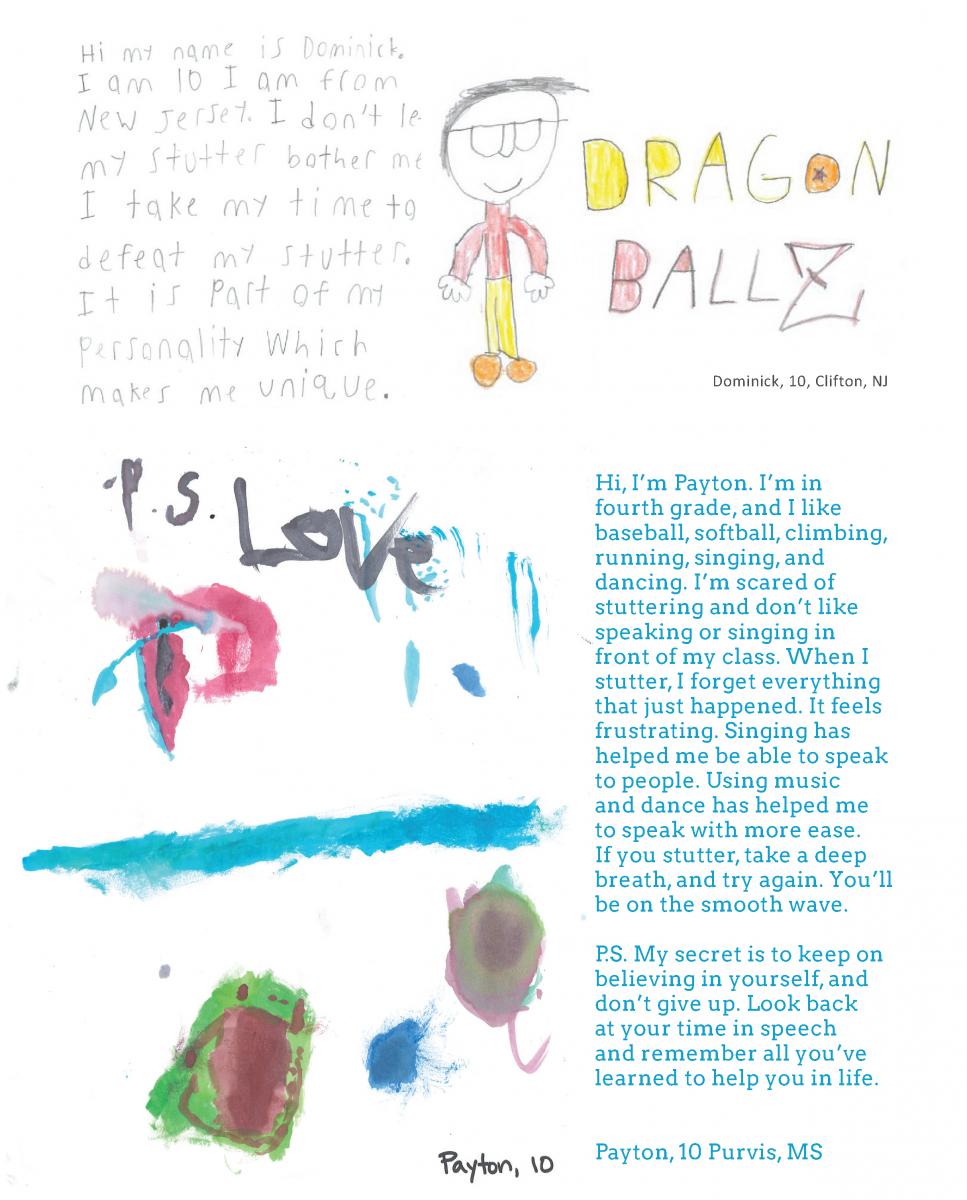 Hi my name is Dominick.
I am 10 I am from
New Jersey. I don't le
my stutter bother me
I take my time to
defeat my stutter.
It is part of my
personality Which
makes me unique.
DRAGON
BALL Z
Dominick, 10, Clifton, NJ
P.S. Love
Hi, I'm Payton. I'm in
fourth grade, and I like
baseball, softball, climbing,
running, singing, and
dancing. I'm scared of
stuttering and don't like
speaking or singing in
front of my class. When I
stutter, I forget everything
that just happened. It feels
frustrating. Singing has
helped me be able to speak
to people. Using music
and dance has helped me
to speak with more ease.
If you stutter, take a deep
breath, and try again. You'll
be on the smooth wave.
P.S. My secret is to keep on
believing in yourself, and
don't give up. Look back
at your time in speech
and remember all you've
learned to help you in life.
Payton, 10
Payton, 10 Purvis, MS